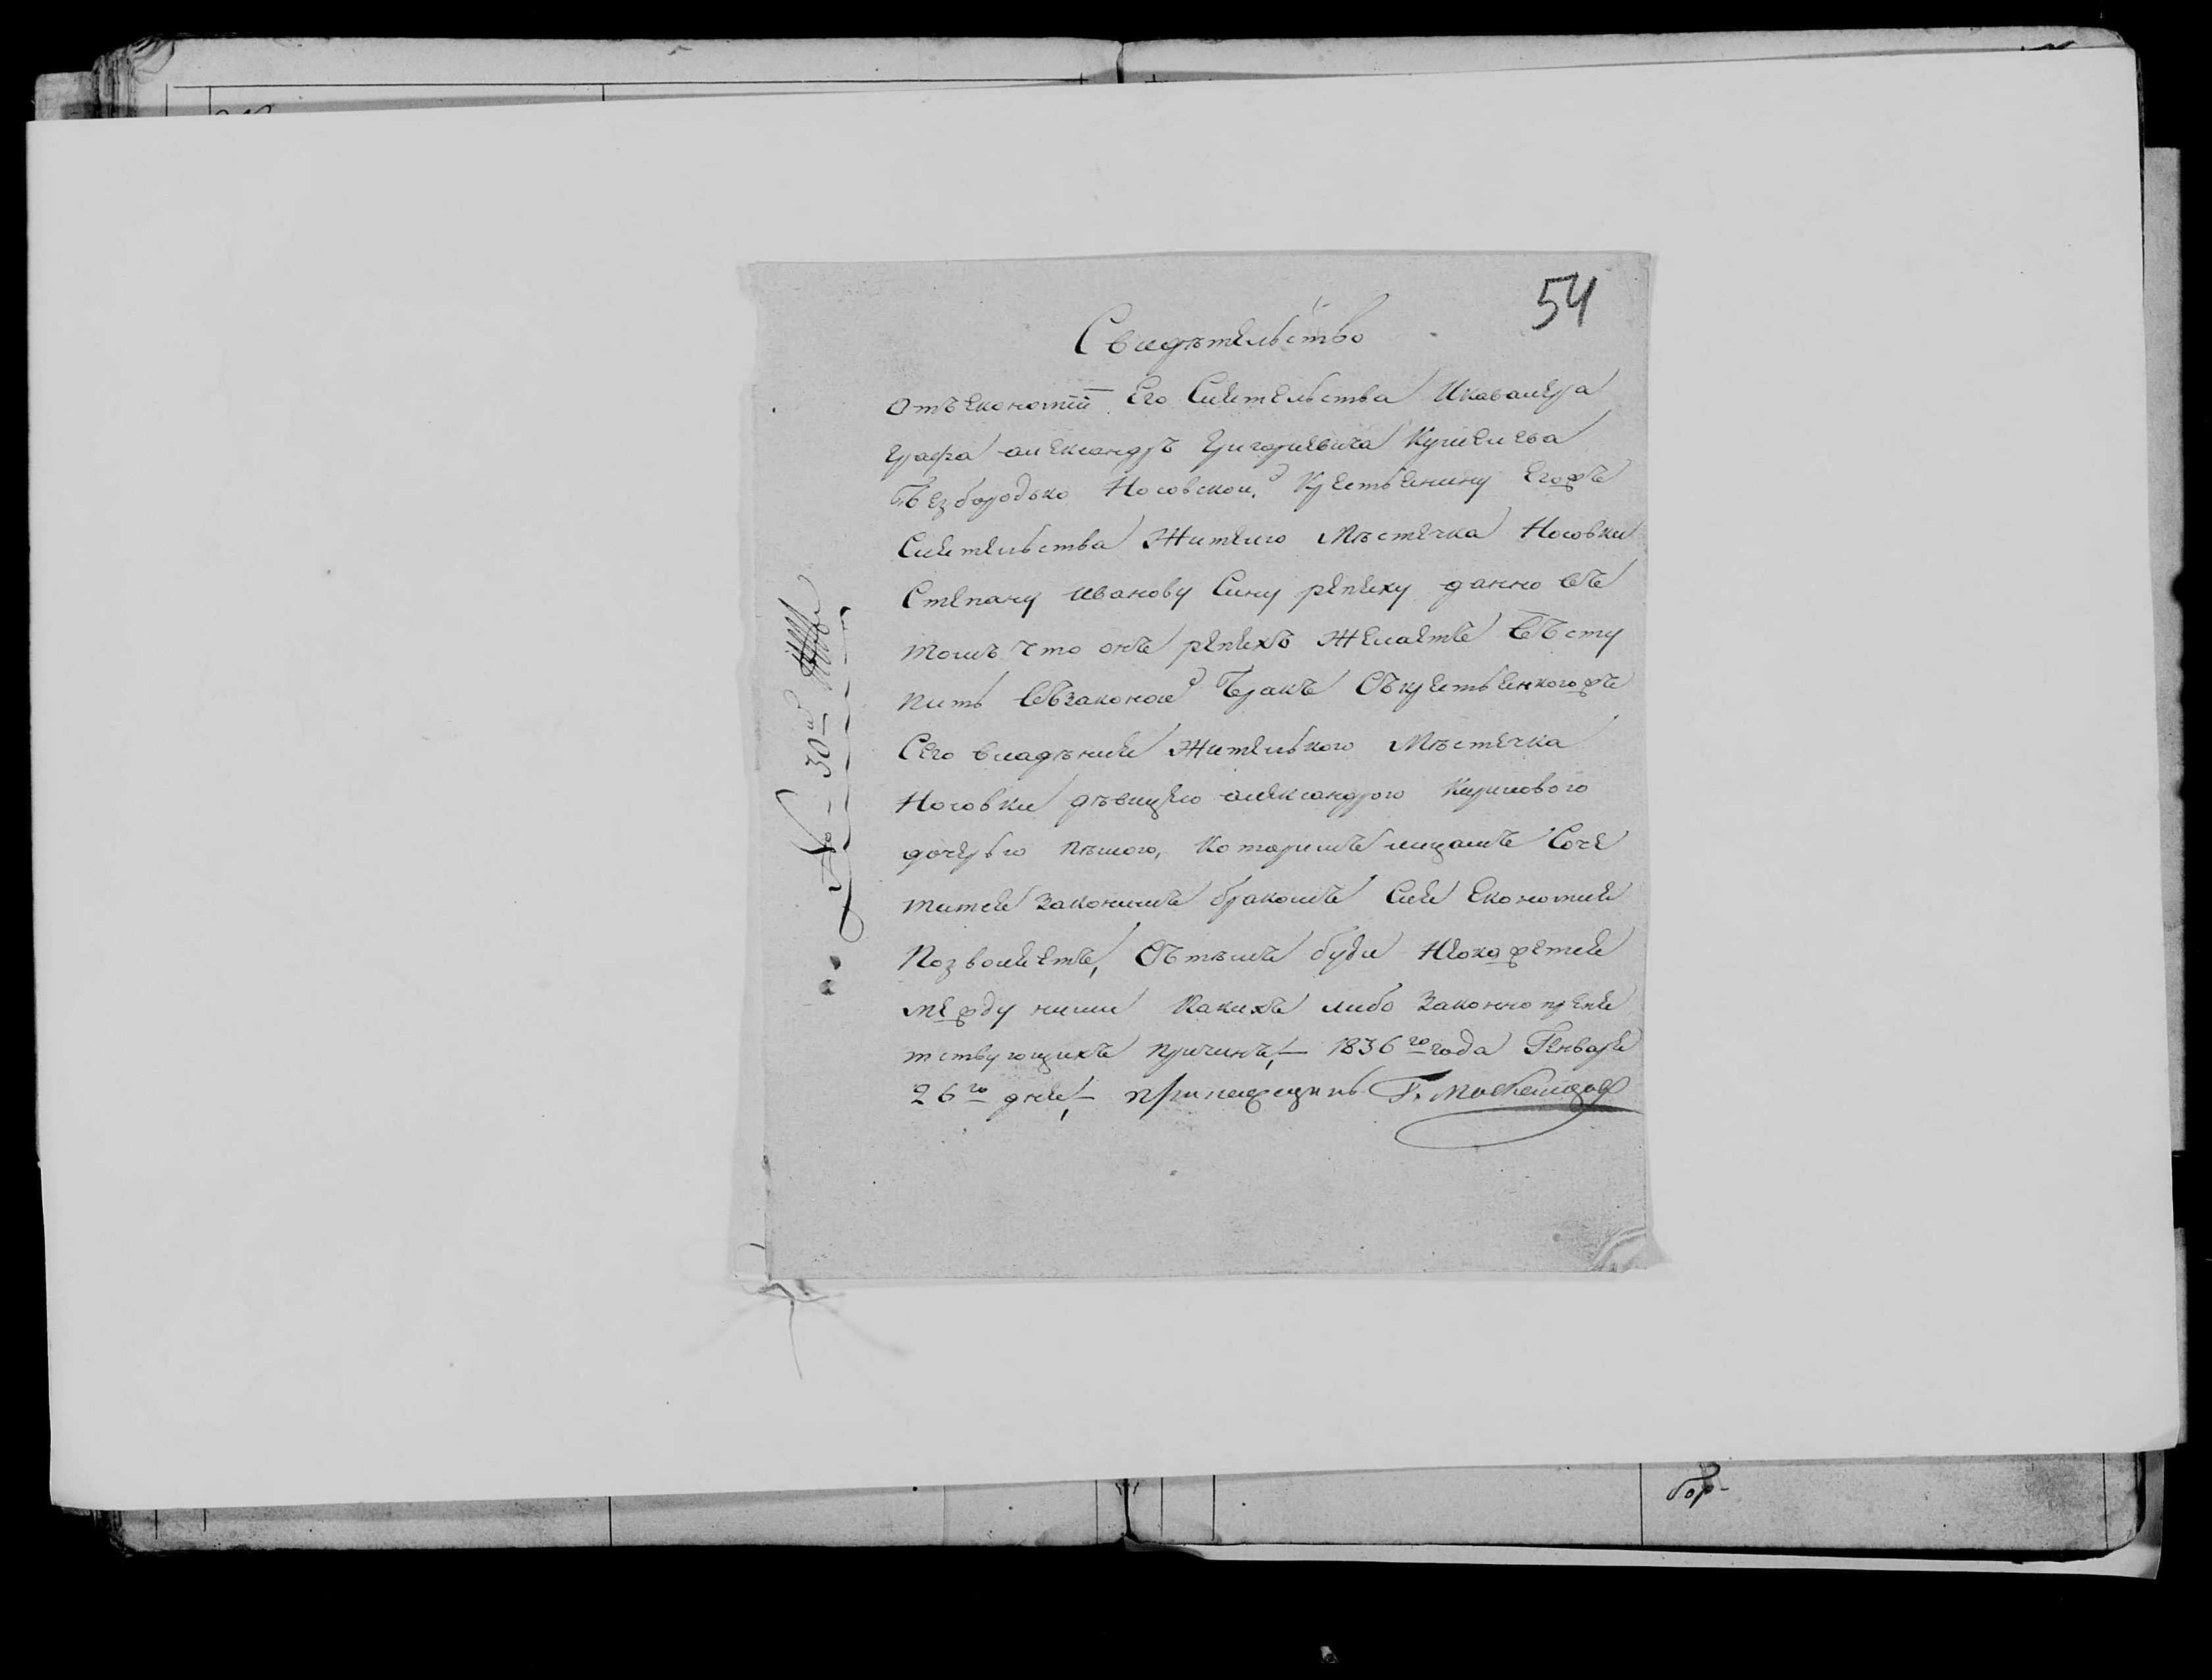 54
Свидѣтельство
Отъ економіи Его Сиятельства Икавалера
графа александръ григориевича Кушелева
Безбородько Носовской Крестьянину Егожъ
Сиятельства Жителю Мѣстечка Носовки
Степану иванову Сину репеху данно въ
томъ что онъ репехъ Желаетъ Въсту
пить Въ законой Бракъ Съкрестьянкогожъ
Сего владѣния Жителького Мѣстечка
Носовки дѣвицею александрого Кириловою
дочерью которимъ лицамъ Соче
татся Законимъ бракомъ Сия Економия
Позволяетъ, Сътѣмъ буди Неокажется
между ними Какихъ либо Законно препя
тствующихъ причинъ,— 1836го года Генваря
26го дня,—
№ 30й
бор-